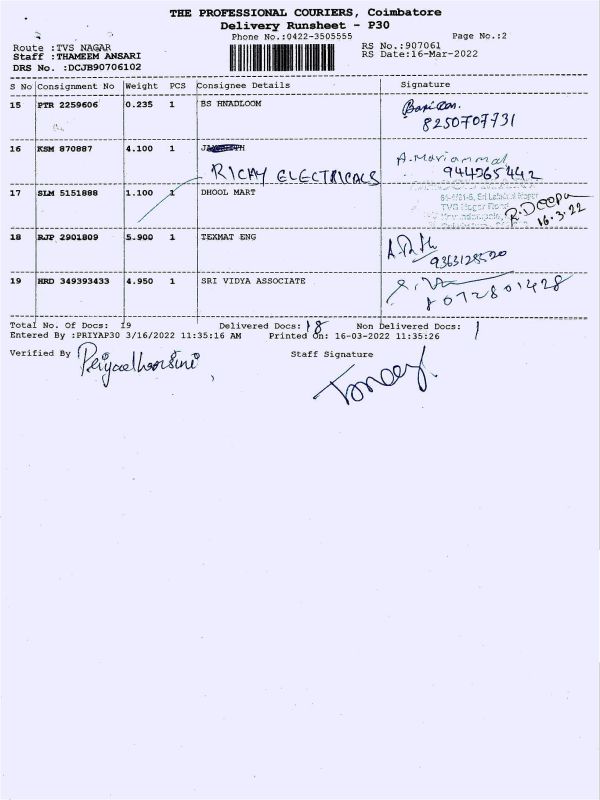 THE PROFESSIONAL COURIERS, Coimbatore
Delivery Runsheet - P30
Phone No.:0422-3505555 Page No.:2
Route :TVS NAGAR RS No.:907061
Staff :THAMEEM ANSARI RS Date:16-Mar-2022
DRS No. :DCJB90706102
S No Consignment No Weight PCS Consignee Details Signature
15 PTR 2259606 0.235 1 BS HNADLOOM
8250707731
16 KSM 870887 4.100 1 A.Mariammal
RICKY ELECTRICALS 944265442
17 SLM 5151888 1.100 1 DHOOL MART
R.Deepa
16.3.22
18 RJP 2901809 5.900 1 TEXMAT ENG
9363128520
19 HRD 349393433 4.950 1 SRI VIDYA ASSOCIATE
8072801428
Total No. Of Docs: 19 Delivered Docs: 18 Non Delivered Docs: 1
Entered By :PRIYAP30 3/16/2022 11:35:16 AM Printed On: 16-03-2022 11:35:26
Verified By Priyadharsini Staff Signature